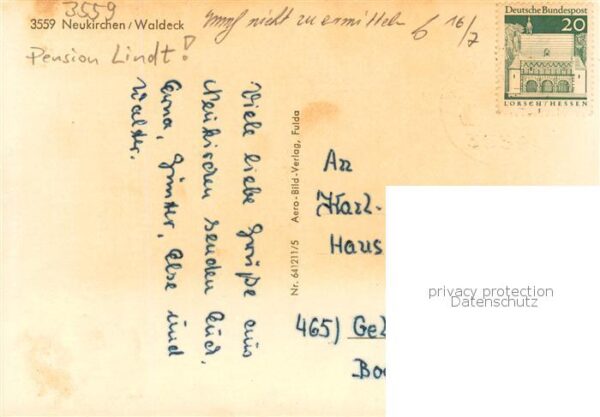 3559
3559 Neukirchen / Waldeck
Pension Lindt!
Empf nicht zu ermitteln
6 16/7
Deutsche Bundespost
20
LORSCH / HESSEN
Viele liebe Grüße aus
Neukirchen senden Euch,
Erna, Günter, Else und
Walter.
Nr. 641211/5 Aero-Bild-Verlag, Fulda
An
Karl-
Haus
465) Gel
Bo
privacy protection
Datenschutz